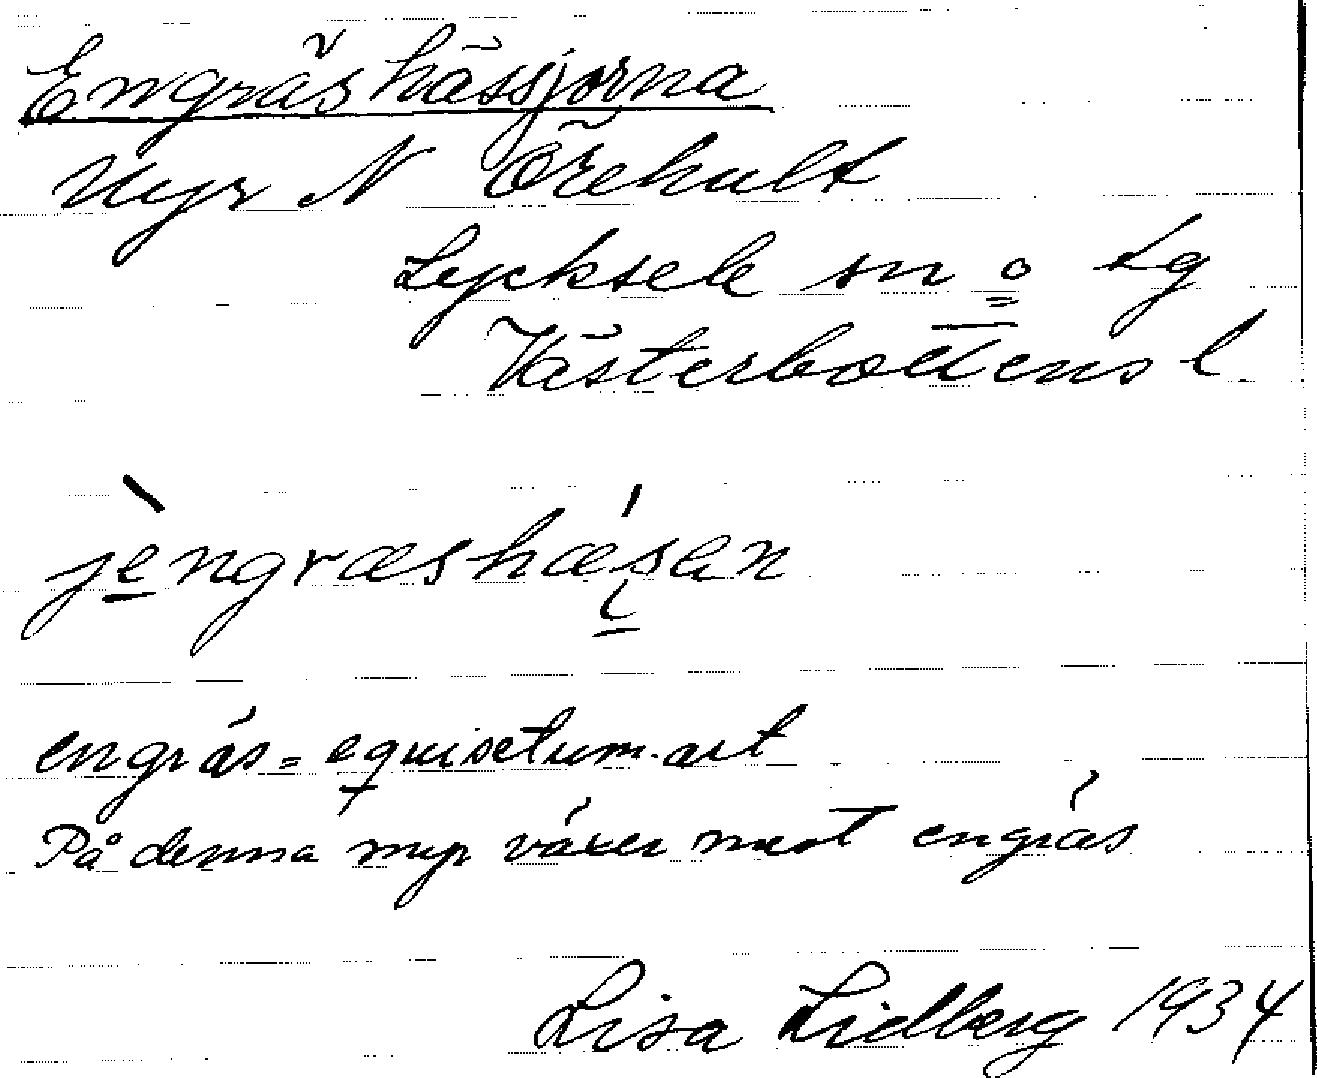 Engräshässjorna
Myr N Örehult
Lycksele sn o Lg
Västerbottens l
jèngræshæ´sen
engräs = equisetum-art
På denna myr växer mest engräs
Lisa Lidberg 1934